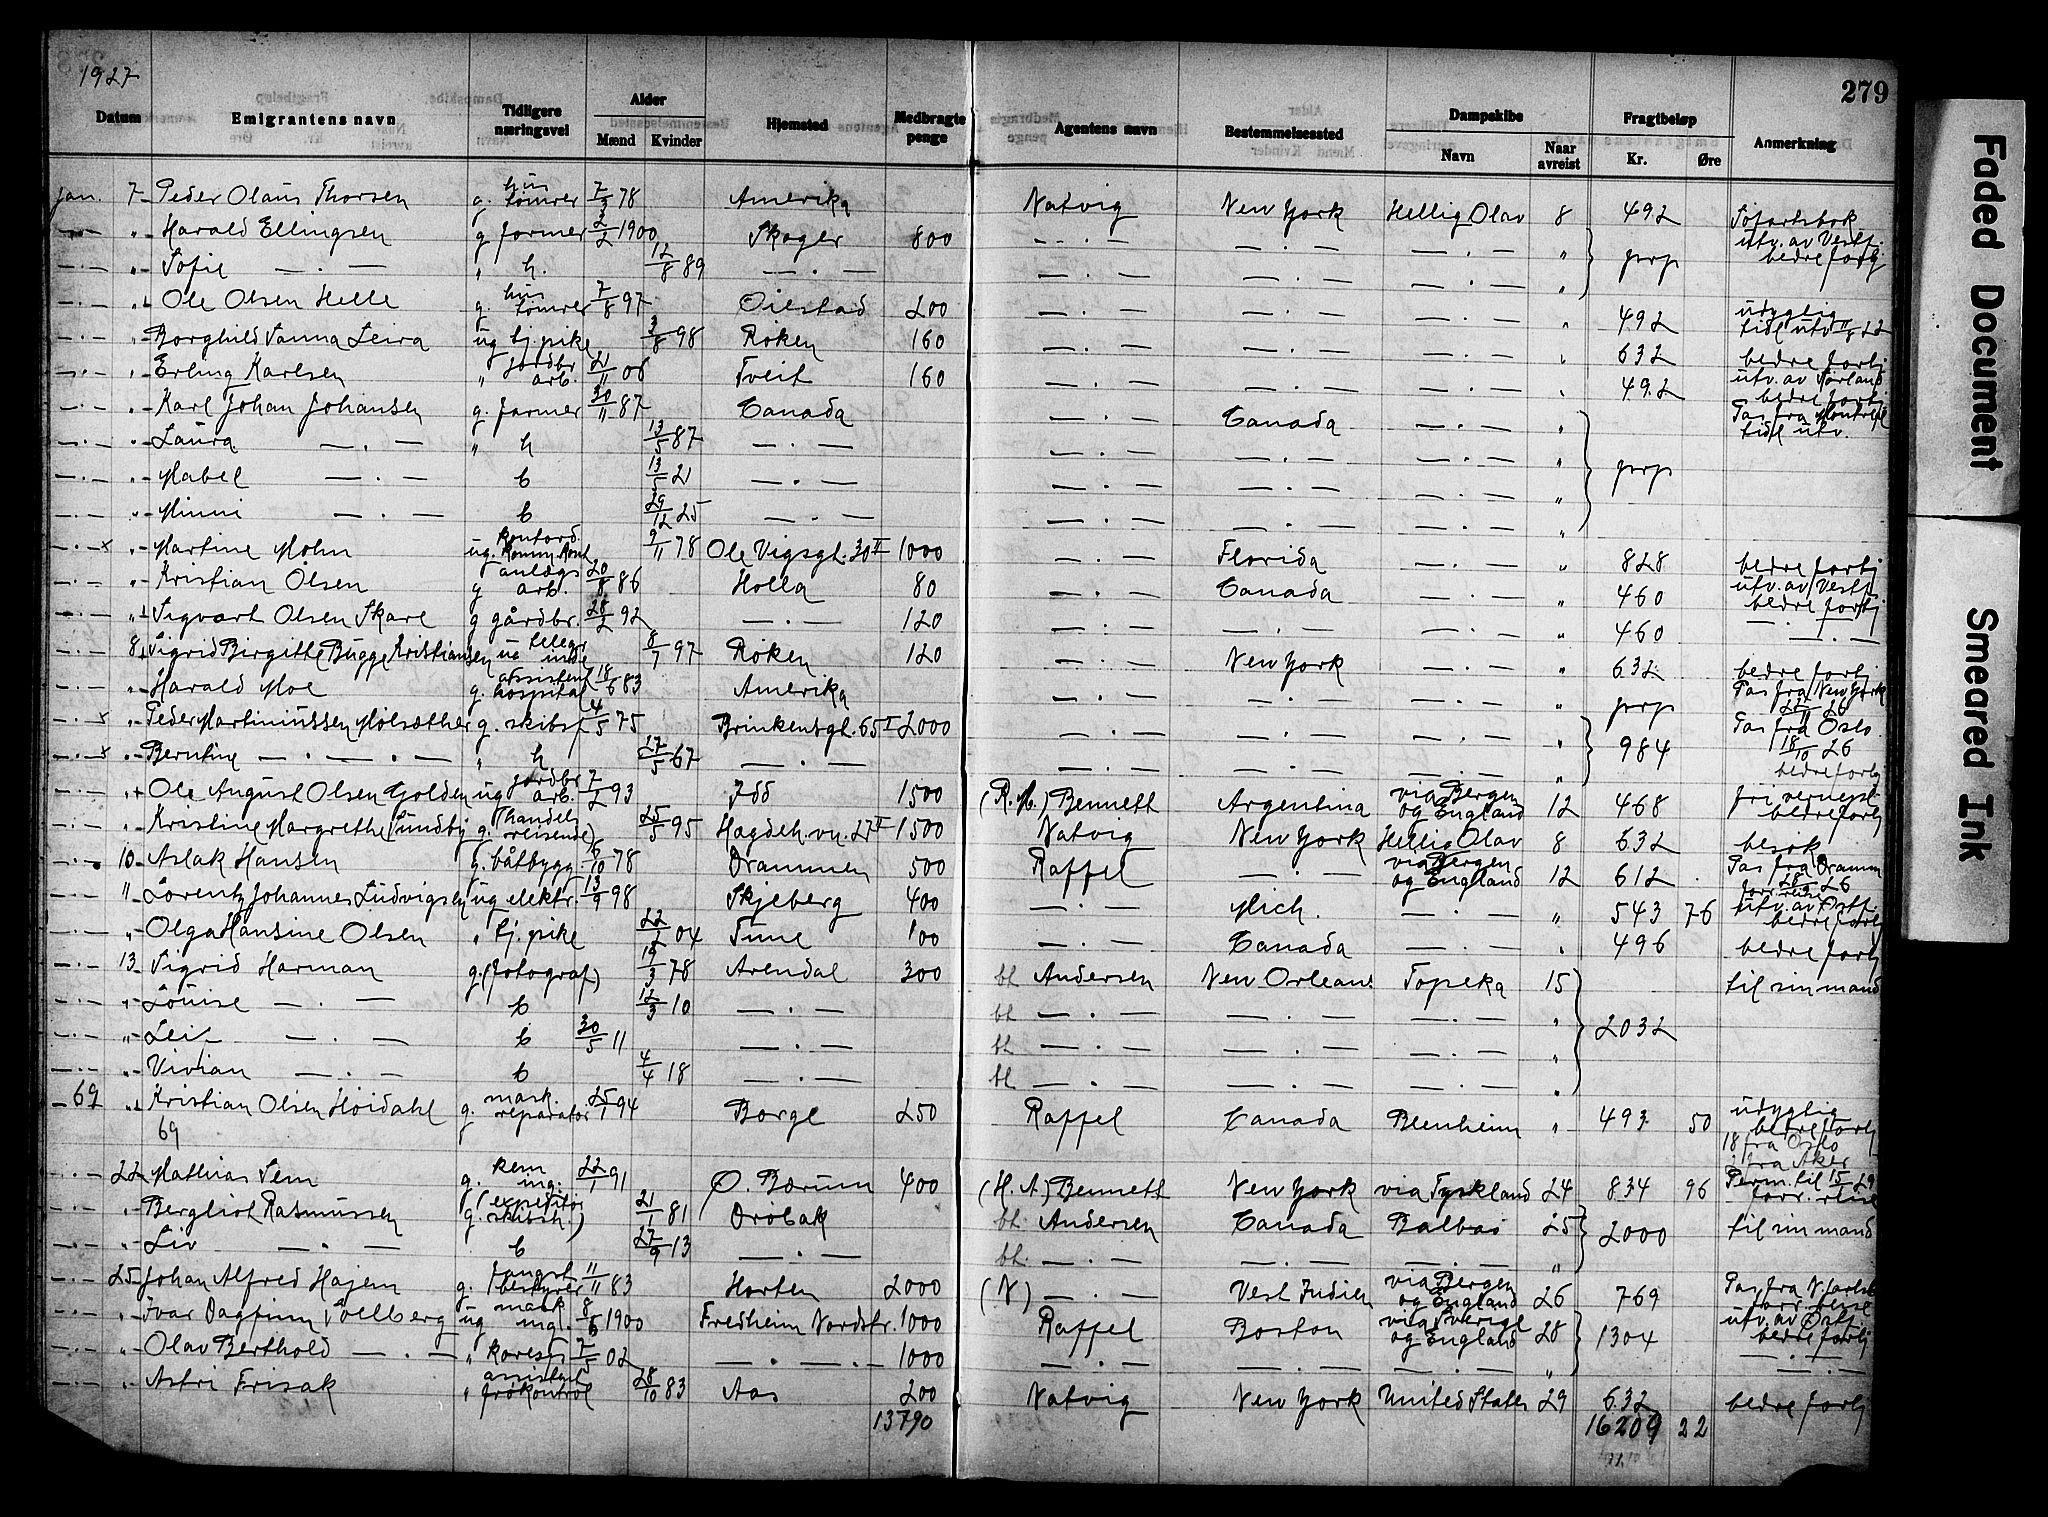 1927
279
Datum Emigrantens navn Tidligere næringsvei Alder Mænd Kvinder Hjemsted Medbragte penge Agentens navn Bestemmelsessted Dampskibe Navn Naar avreist Fragtbeløp Kr. Øre Anmerkning
Jan. 7 Peder Olaus Thorsen g. hustømrer 7/3 78 Amerika Natvig New York Hellig Olav 8 492 Sjøfartsbok
" Harald Ellingsen g farmer 3/2 1900 Skoger 800 — . — — . — — . — " } prp utv. av Vestf. bedre fortj
" Sofie — . — " h. 12/8 89 — . — — . — — . — — . — "
" Ole Olsen Helle g. hustømrer 7/8 97 Øiestad 200 — . — — . — — . — " 492 udygtig tidl utv
" Borghild Sanna Leira ug tj. pike 3/8 98 Røken 160 — . — — . — — . — " 632 bedre fortj
" Erling Karlsen " jordbr arb. 21/11 06 Tveit 160 — . — — . — — . — " 492 utv. av Sørland bedre fortj
" Karl Johan Johansen g. farmer 30/11 87 Canada — . — Canada — . — " } prp Pas fra Montreal tidl utv.
" Laura — . — " h 13/5 87 — . — — . — — . — — . — "
" Mabel — . — b 13/5 21 — . — — . — — . — — . — "
" Minni — . — b 29/12 25 — . — — . — — . — — . — "
x " Martine Mohn ug. kontord. 9/11 78 Ole Vigsgt. 30 II 1000 — . — Florida — . — " 828 bedre fortj
" Kristian Olsen g anlægs arb. 20/8 86 Holla 80 — . — Canada — . — " 460 utv. av Vestf bedre fortj
" Sigvart Olsen Skare g gårdbr. 28/2 92 — . — 120 — . — — . — — . — " 460 — . —
8 Sigrid Birgithe Bugge Kristiansen ug telegr inde 8/7 97 Røken 120 — . — New York — . — " 632 bedre fortj
" Harald Moe g. assistent hospital 18/6 83 Amerika — . — — . — — . — " prp Pas fra New York 27/11 26
x " Peder Martinussen Molsæther g. skibsf 4/5 75 Brinkensgt. 65 I 2000 — . — — . — — . — " } 984 Pas fra Oslo 18/10 26
x " Berntine — . — . — " h 27/5 67 — . — — . — — . — — . — " bedre fortj
" Ole August Olsen Golden ug jordbr arb. 7/2 93 Idd 1500 (R. M.) Bennett Argentina via Bergen og England 12 468 fri vernepl bedre fortj
" Kristine Margrethe Sundby g. (handelsreisende) 25/5 95 Hagdeh. vn. 27 II 1500 Natvig New York Hellig Olav 8 632 besøk
10 Aslak Hansen g. båtbygg 6/10 78 Drammen 500 Raffel — . — via Bergen og England 12 612 Pas fra Dramm 28/9 26 forr. reise
" Lorentz Johannes Ludvigsen ug elektr. 13/9 98 Skjeberg 400 — . — Mich. — . — " 543 76 utv. av Østf. bedre fortj
" Olga Hansine Olsen " tj. pike 22/2 04 Tune 100 — . — Canada — . — " 496 bedre fortj
13 Sigrid Harman g. (fotograf) 19/3 78 Arendal 300 bl Andersen New Orleans Topeka 15 } 2032 til sin mand
" Louise — . — b 12/3 10 — . — bl — . — — . — — . — "
" Leif — . — b 30/5 11 — . — bl — . — — . — — . — "
" Vivian — . — b 4/4 18 — . — bl — . — — . — — . — "
69 " Kristian Olsen Høidahl g. mask. reparatør 25/1 94 Borge 250 Raffel Canada Blenheim " 493 50 udygtig bedre fortj
69 18 fra Oslo : fra Aker
22 Mathias Sem g. kem ing. 22/1 91 Ø. Bærum 400 (H. A) Bennett New York via Tyskland 24 834 96 Perm. til 15/ 29 forr. reise
" Bergliot Rasmussen g. (expeditør skibsh.) 21/1 81 Drøbak bl. Andersen Canada Balbas 25 } 2000 til sin mand
" Liv — . — b 27/9 13 — . — bl. — . — "
25 Johan Alfred Hajem g. fangst bestyrer 11/11 83 Horten 2000 (N) — . — Vest Indien via Bergen og England 26 769 Pas fra forr. reise
" Ivar Dagfinn Solberg ug mask ing. 8/6 1900 Fredheim Nordstr. 1000 Raffel Boston via Sverige og England 28 } 1304 utv. av Østf. bedre fortj
" Olav Berthold — . — " 7/5 02 — . — . — 1000 — . — — . — — . — " — . —
" Astri Frisak " assistent frøkontrol 28/10 83 Aas 200 Natvig New York United States 29 632 bedre fortj
13790 16209 22
Faded Document
Smeared Ink